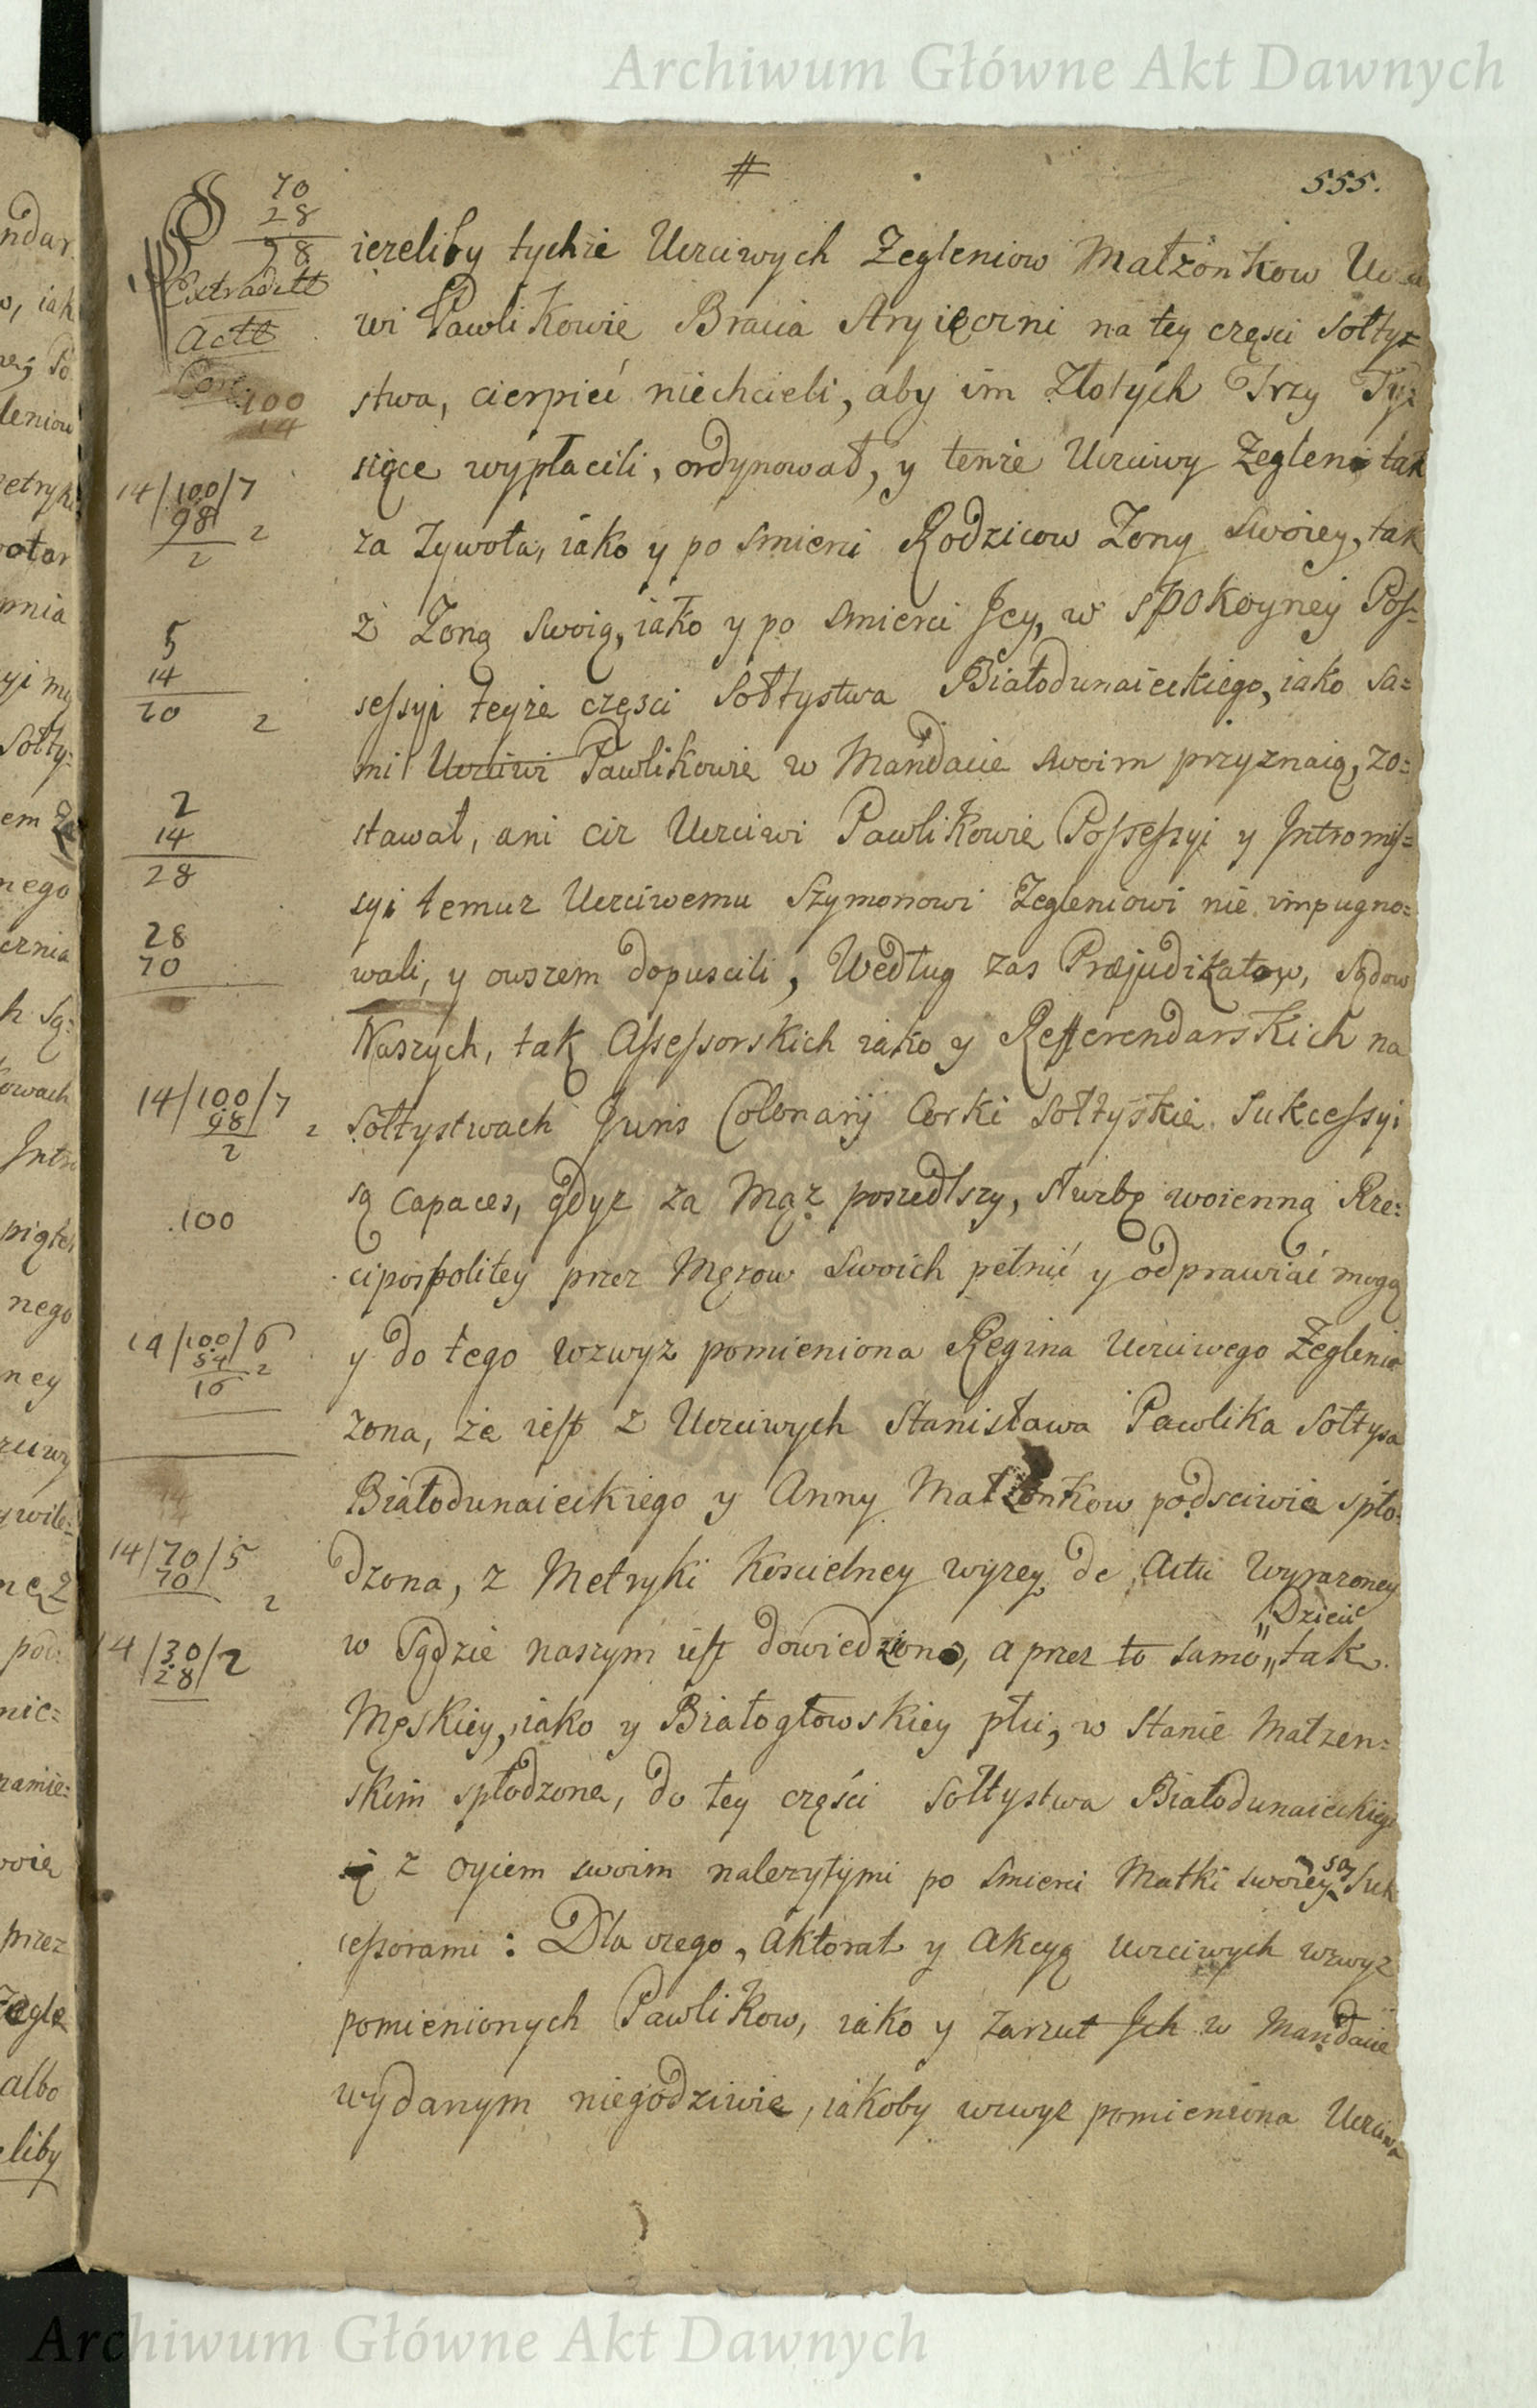 Archiwum Główne Akt Dawnych
#
555.
70
28
98
Extraditt
Actt
100
14
14/100/7
98
2 2
5
14
70 2
2
14
28
28
70
14/100/7
98 2
2
100
14/100/6
84 2
16
14
14/70/5
70
2
14/30/2
28
iezeliby tychże Uczciwych Zegleniow Małżonkow
wi Pawlikowie Bracia Stryieczni na tey części Sołtys-
stwa, cierpieć niechcieli, aby im Złotych Trzy Ty-
siące wypłacili, ordynował, y tenże Uczciwy Zeglen tak
za Zywota, iako y po smierci Rodzicow Zony Swoiey, tak
z Zoną Swoią, iako y po Smierci Jey, w spokoyney Pos-
sessyi teyże częsci Sołtystwa Białodunaieckiego, iako Sa=
mi Uczciwi Pawlikowie w Mandacie Swoim przyznaią, zo=
stawał, ani ciż Uczciwi Pawlikowie Possessyi y Intromis=
syi temuz Uczciwemu Szymonowi Zegleniowi nie impugno=
wali, y owszem dopuscili, Według zas Præjudikatow, Sądow
Naszych, tak Assessorskich iako y Refferendarskich na
Sołtystwach Juris Colonarij Corki Sołtyskie Sukcessyi
są Capaces, gdyz za Mąz poszedłszy, służbę woienną Rze=
cipospolitey przez Męzow Swoich pełnić y odprawiać mogą
y do tego wzwyz pomieniona Regina Uczciwego Zeglenia
zona, że iest z Uczciwych Stanisława Pawlika Sołtysa
Białodunaieckiego y Anny Małżonkow podsciwie spło-
dzona, z Metryki Koscielney wyzey de Actu Wyrazoney
Dzieci
w Sądzie naszym iest dowiedziono, a przez to samo „ tak
Męskiey, iako y Białogłowskiey płci, w Stanie Małzen=
skim spłodzone, do tey części Sołtystwa Białodunaieckiego
z Oycem swoim nalezytymi po Smierci Matki swoiey są Suk
cessorami: Dla czego, Aktorat y Akcyą Uczciwych wzwyz
pomienionych Pawlikow, iako y zarzut Ich w Mandacie
wydanym niegodziwie, iakoby wzwyz pomieniona Uczciwa
Archiwum Główne Akt Dawnych